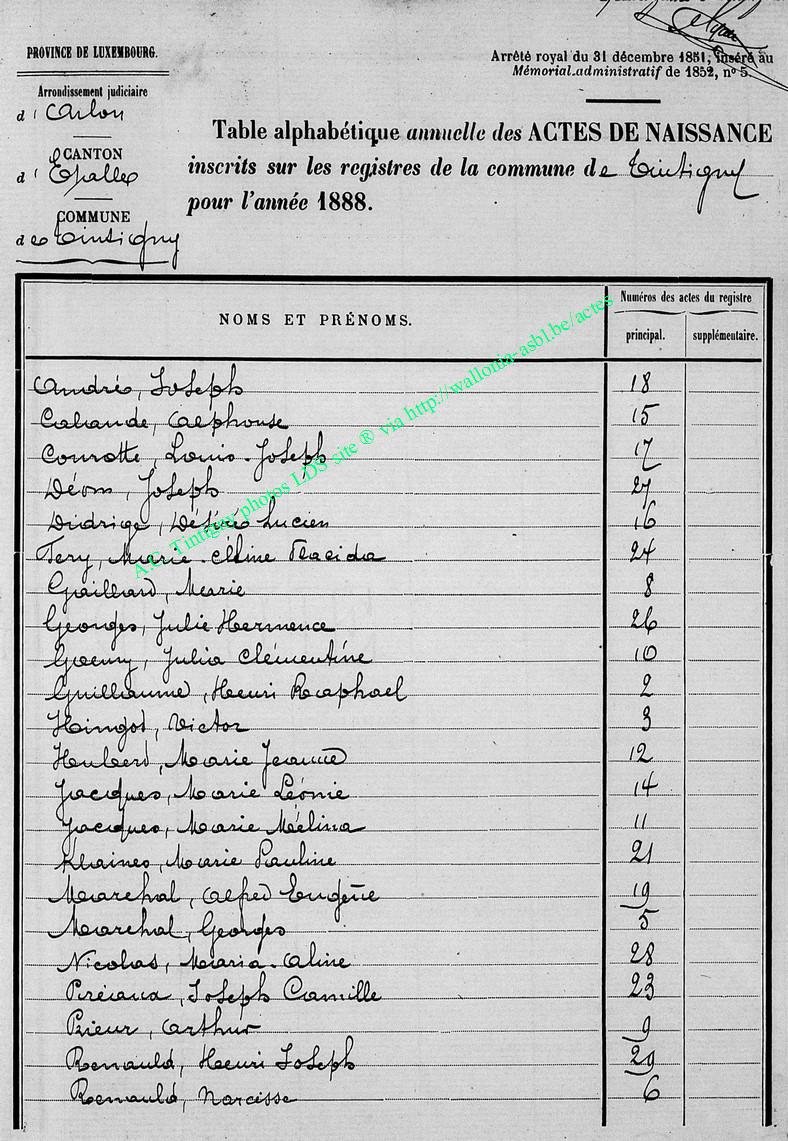 PROVINCE DE LUXEMBOURG.
Arrêté royal du 31 décembre 1851, inséré au
Mémorial administratif de 1852, n° 5.
Arrondissement judiciaire
d'Arlon
CANTON
d'Etalle
COMMUNE
de Tintigny
Table alphabétique annuelle des ACTES DE NAISSANCE
inscrits sur les registres de la commune de Tintigny
pour l'année 1888.
NOMS ET PRÉNOMS.
Numéros des actes du registre
principal.
supplémentaire.
André, Joseph 18
Alphonse 15
Courotte, Louis-Joseph 17
Déom, Joseph 27
Didrige, Désiré Lucien 16
Fery, Marie-Céline Placida 24
Gaillard, Marie 8
Georges, Julie Hermence 26
Goeury, Julia Clémentine 10
Guillaume, Henri Raphael 2
Hingot, Victor 3
Hubert, Marie Jeanne 12
Jacques, Marie Léonie 14
Jacques, Marie Mélina 11
Klaines, Marie Pauline 21
Marchal, Alfred Eugène 19
Marchal, Georges 5
Nicolas, Maria-Aline 28
Joseph Camille 23
Prieur, Arthur 9
Renauld, Henri Joseph 29
Renauld, Narcisse 6
A.C. Tintigny photos LDS site ® via http://wallonia-asbl.be/actes